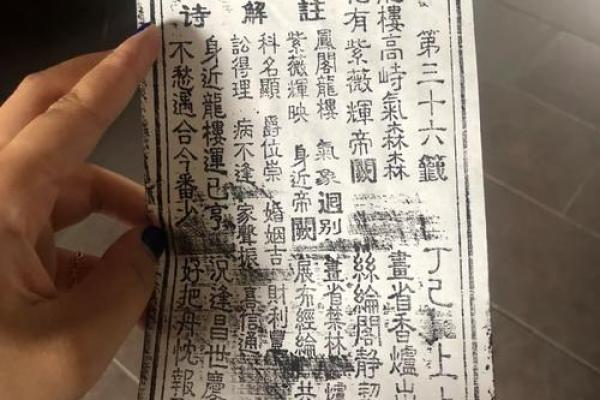 第三十六籤 丁己 上
樓高峙氣森森 畫省香爐
有紫薇輝帝闕 絲綸閣静
註解诗
鳳閣龍樓 氣象迴别 畫省禁林 爐
紫薇輝映 身近帝闕 展布經綸 共
科名顯 爵位崇 婚姻吉 財利
訟得理 病不逢 家聲振 喜信通
身近龍樓運已亨 況逢昌世慶
不愁遇合今番少 好把丹忱報